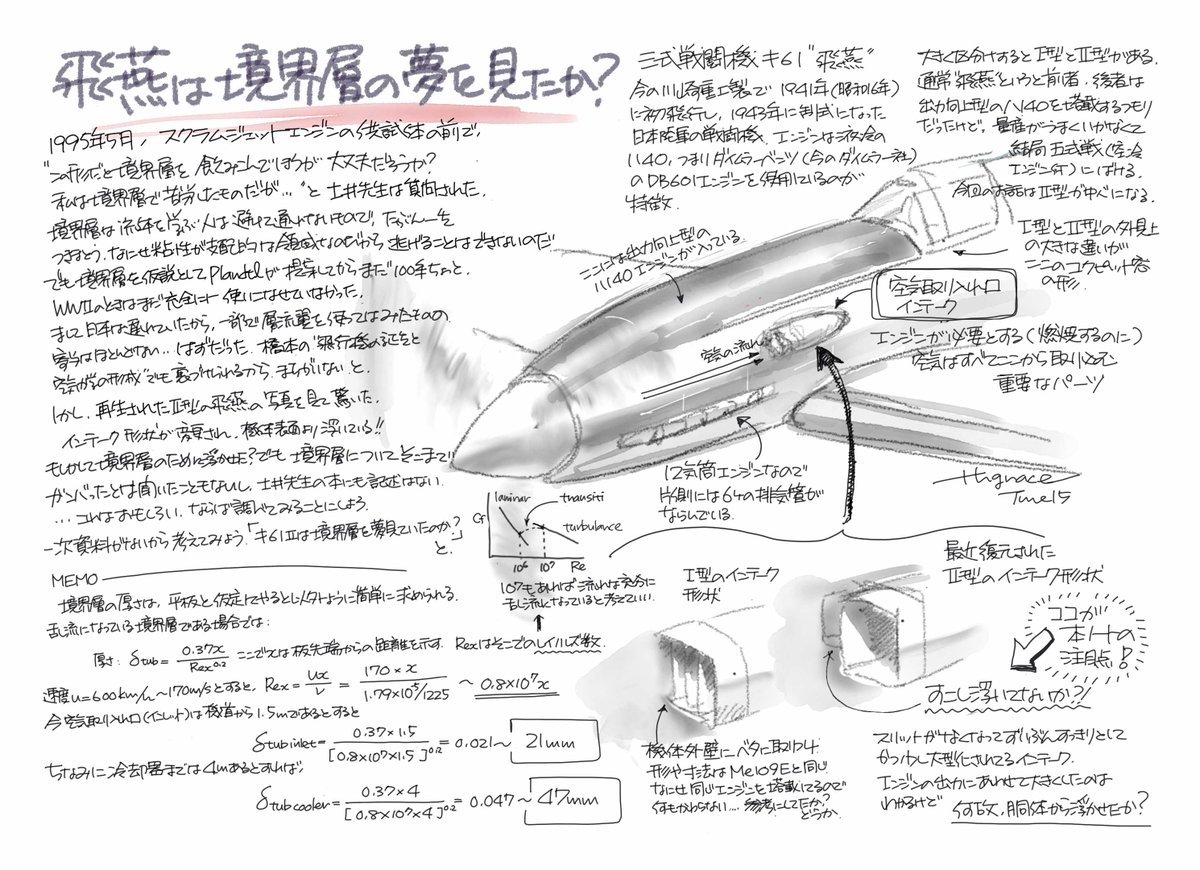 飛燕は境界層の夢を見たか?
1995年5月, スクラムジェットエンジンの供試体の前で,
"この形だと境界層を飲みこんでしまうが 大丈夫だろうか?
私は境界層で苦労したものだが…"と土井先生は質問された.
境界層は流体を学ぶ人は避けて通れないもので,たぶん一生
つきまとう.なにせ粘性が支配
領域なのだから 逃げることはできないのだ
でも境界層を仮説としてPlandtelが提案してからまだ100年ちょっと.
WWIIのときはまだ完全に一使いこなせていなかった.
まして日本は遅れていたから,一部で層流翼を使ってはみたものの
寄与はほとんどない…はずだった.橋本の"飛行機の誕生と
空気力学の形成"でも裏づけられるから,まちがいない と.
しかし,再生されたII型の飛燕の写真を見て驚いた.
インテーク形状が変更され,機体表面より浮いている!!
もしかして境界層のために浮かせた?でも境界層についてそこまで
がんばったとは聞いたこともないし,土井先生の本にも記述はない.
…これはおもしろい.ならば調べてみることにしよう.
一次資料がないから考えてみよう.「キ61IIは境界層を夢見ていたのか?」
と.
三式戦闘機キ61"飛燕"
今の川崎重工製で 1941年(昭和16年)
に初飛行し,1943年に制式になった
日本陸軍の戦闘機.エンジンは液冷の
ハ40,つまりダイムラーベンツ(今のダイムラー社)
のDB601エンジンを使用しているのが
特徴.
大きく区分けするとI型とII型がある.
通常"飛燕"というと前者.後者は
出力向上型のハ140を搭載するつもり
だったけど,量産がうまくいかなくて
結局 五式戦(空冷
エンジン付)にばける.
今回のお話はII型が中心になる.
I型とII型の外見上
の大きな違いが
ここのコクピット窓
の形.
ここには出力向上型の
ハ140エンジンが入っている.
空気取り入れ口
インテーク
エンジンが必要とする(燃焼するのに)
空気はすべてここから取り込む
重要なパーツ
空気の流れ
12気筒エンジンなので
片側には6ヶの排気管が
ならんでいる.
Hugnace
June15
laminar
transiti
turbulance
Cf
10⁶ 10⁷ Re
10⁷もあれば流れは充分に
乱流になっていると考えていい.
MEMO
境界層の厚さは,平板と仮定してやると以下のように簡単に求められる.
乱流になっている境界層である場合では:
厚さ: δtub = 0.37x / Rex^0.2 ここでxは板先端からの距離を示す. Rexはそこでのレイノルズ数.
速度u=600km/h~170m/sとすると, Rex = ux/ν = 170×x / 1.79×10⁵/1225 ~ 0.8×10⁷x
今空気取り入れ口(インレット)は機首から1.5mであるとすると
δtub inlet = 0.37×1.5 / [0.8×10⁷×1.5]^0.2 = 0.021~ 21mm
ちなみに冷却器までは4mあるとすれば,
δtub cooler = 0.37×4 / [0.8×10⁷×4]^0.2 = 0.047~ 47mm
I型のインテーク
形状
機体外壁にベタに取り付け.
形や寸法はMe109Eと同じ.
なにせ同じエンジンを搭載してるので
何もかわらない….参考にしてたか?
どうか.
最近復元された
II型のインテーク形状
ココが
本ノートの
注目点!
すこし浮いてないか?!
スリットがなくなってずいぶんすっきりとして
かつ少し大型化されてるインテーク.
エンジンの出力にあわせて大きくしたのは
わかるけど
何故,胴体から浮かせたか?